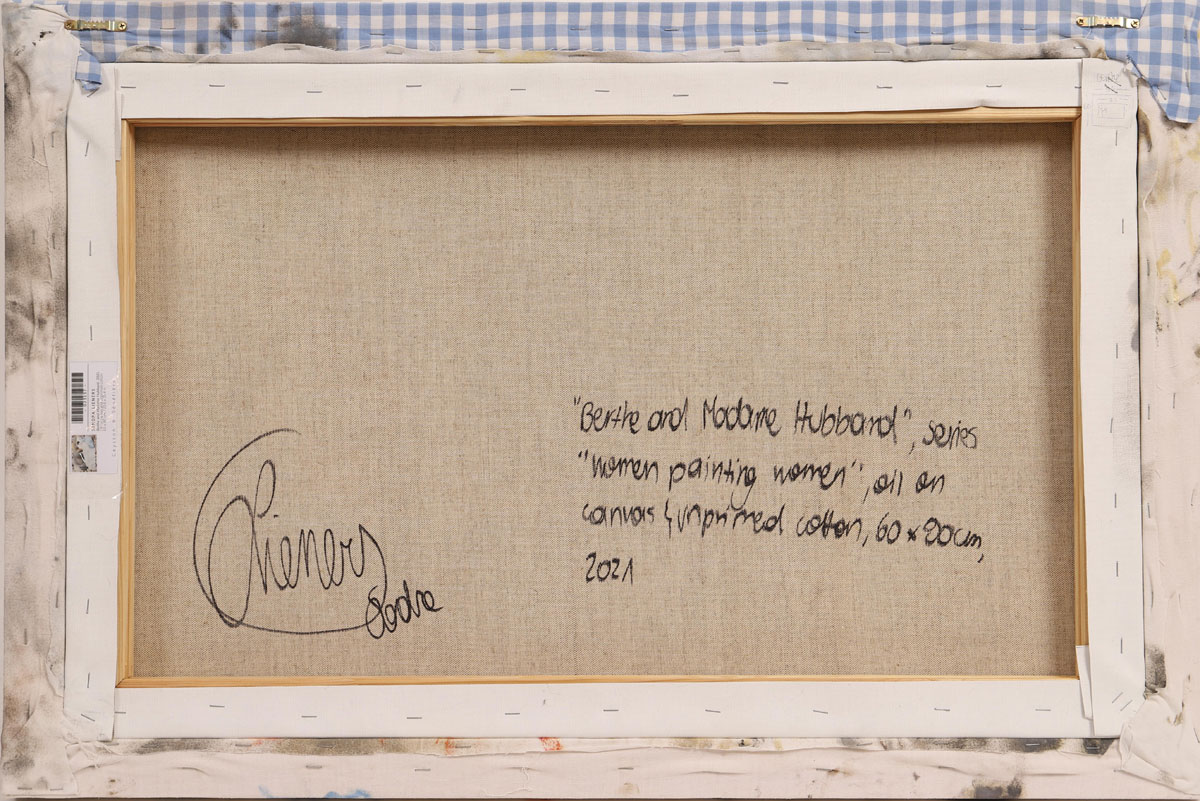 "Berthe and Madame Hubbard", series
"women painting women", oil on
canvas & unprimed cotton, 60 x 90cm,
2021
Lieners